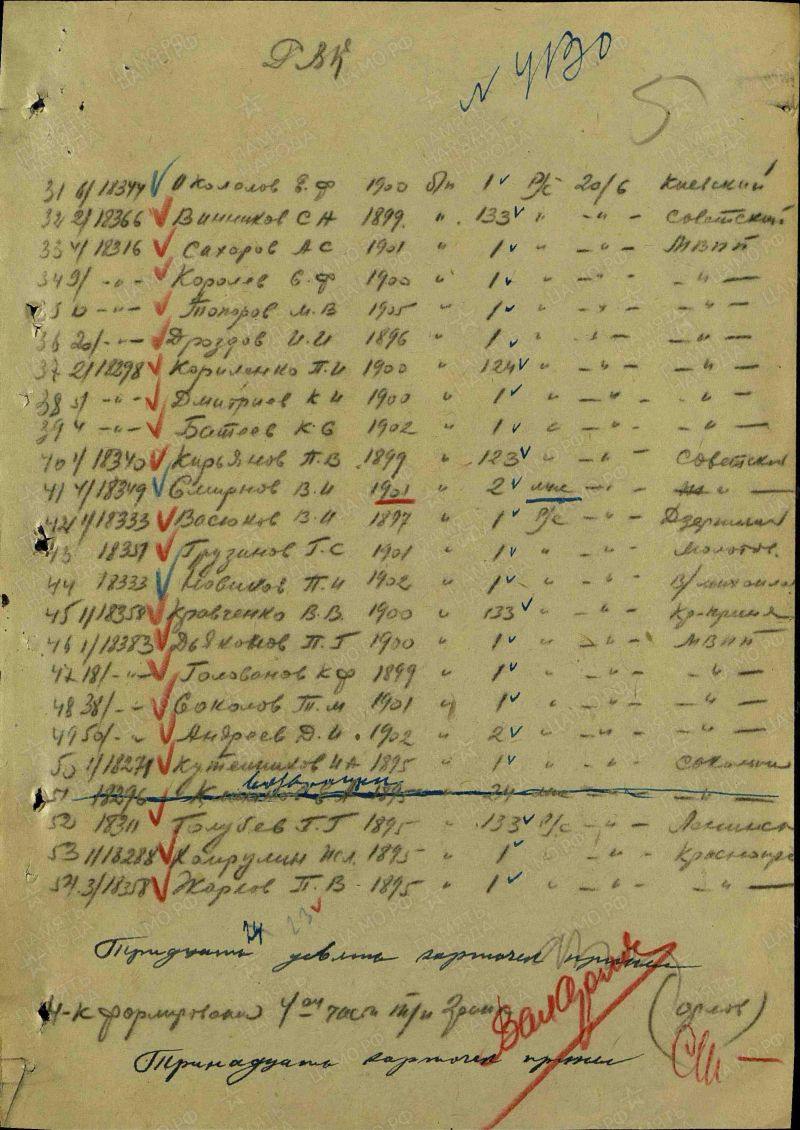 РВК
N 4130
5
31 6/18344 Окололов Е.Ф 1900 б/п 1 Р/с 20/6 Киевский
32 2/18366 Винников С А 1899 " 133 " - " - Советский
33 4/18316 Сахоров А С 1901 " 1 " - " - МВПП
34 9/ - " - Королев С.Ф 1900 " 1 " - " - - " -
35 - " - Топоров М.В 1905 " 1 " - " - - " -
36 20/ - " - Дроздов И.И 1896 " 1 " - " - - " -
37 2/18298 Кориленко П.И 1900 " 124 " - " - - " -
38 5/ - " - Дмитриев К И 1900 " 1 " - " - - " -
39 4 - " - Батеев К С 1902 " 1 " - " - - " -
40 1/18340 Кирьянов П.В 1899 " 123 " - " - Советский
41 4/18349 Смирнов В.И 1901 " 2 мнс - " - - " -
42 1/18333 Васюков В.И 1897 " 1 Р/с - " - Дзержинск
43 18351 Грузинов Г.С 1901 " 1 " - " - Молотов.
44 18333 Новиков П.И 1902 " 1 " - " -
45 1/18358 Кравченко В.В. 1900 " 133 " - " - Кр-пресня
46 1/18383 Дьяконов П.Г 1900 " 1 " - " - МВПП
47 18/ - " - Голованов К Ф 1899 " 1 " - " - - " -
48 38/ - " - Соколов Т.М 1901 " 1 " - " - - " -
49 50/ - " - Андреев Д.И. 1902 " 2 " - " - - " -
50 1/18271 Кутейников И А 1895 " 1 " - " - Сокольни
51 18296 1895 " 24 - " -
52 18311 Голубев Г.Г 1895 " 133 Р/с - " - Ленинск
53 1/18288 1895 " 1 - " - Краснопре
54 3/18358 Жарлов П.В 1895 " 1 " - " - - " -
24 23
Тридцать девять карточек принял
Н-к формирования 4 ой части (Орлов)
Тринадцать карточек принял